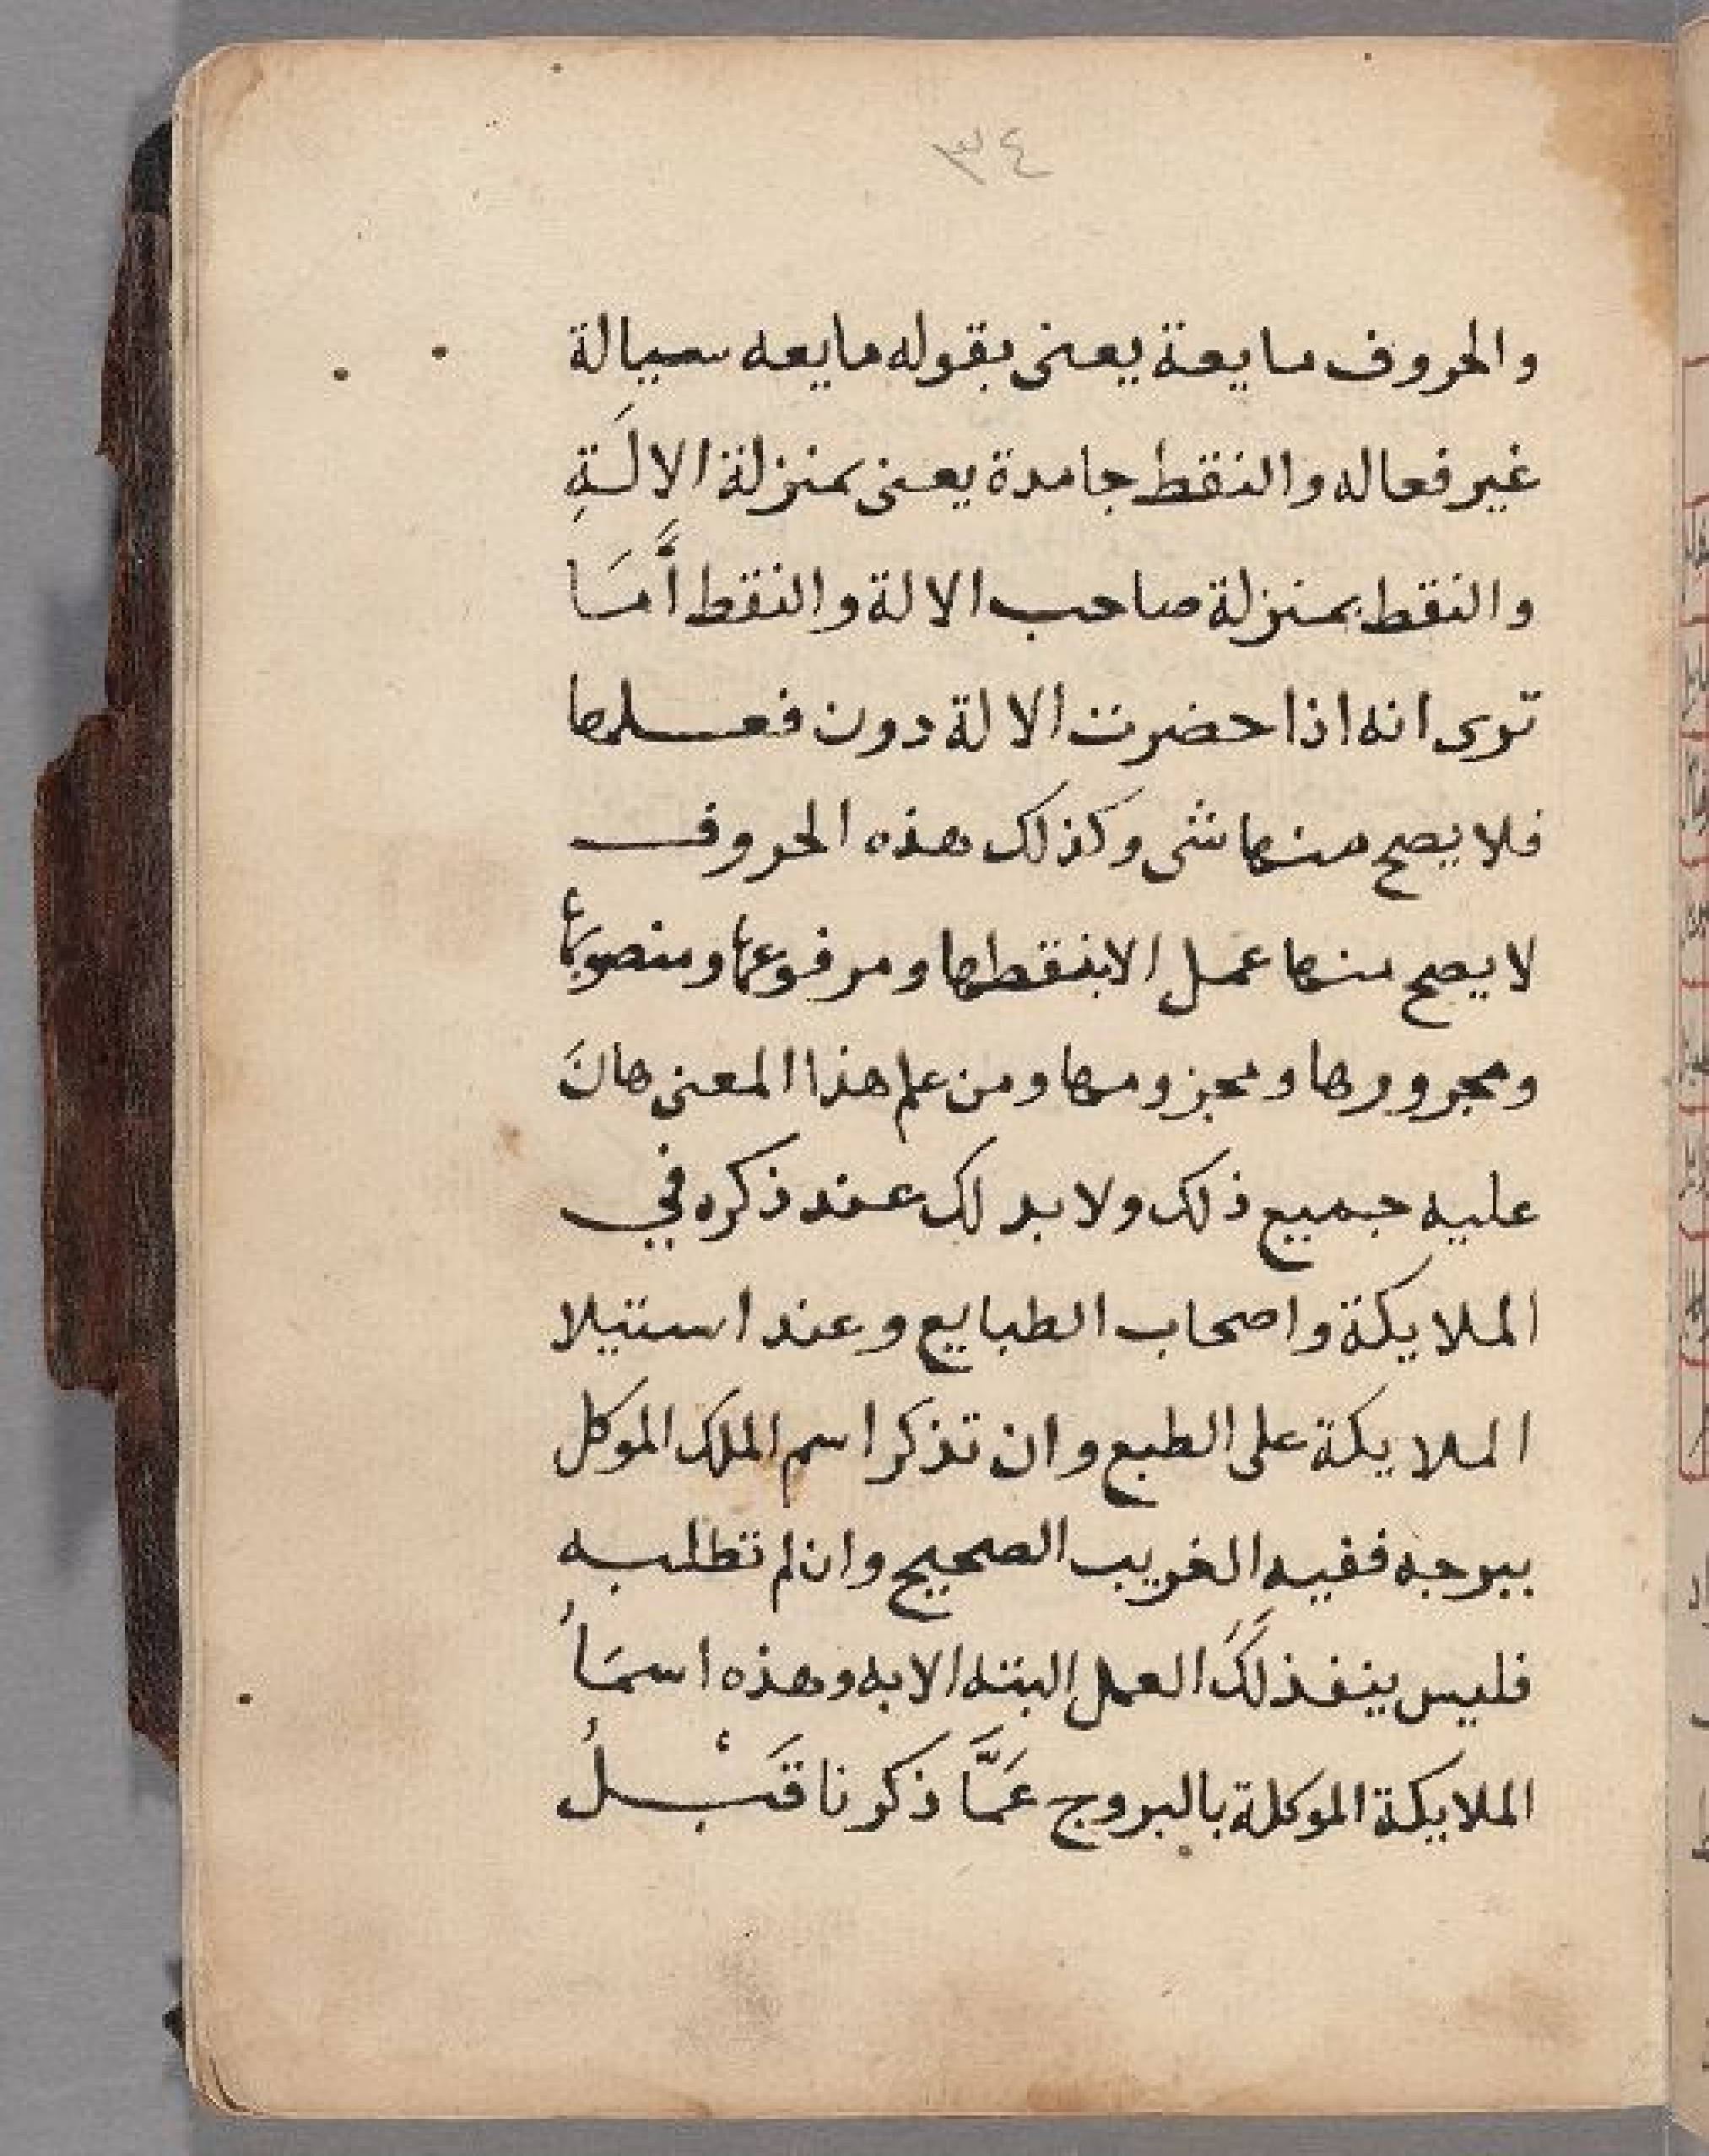 ٣٤
والحروف مايعة يعنى بقوله مايعه سيالة
غير فعاله والنقط جامدة يعنى بمنزلة الالَةِ
والنقط بمنزلة صاحب الالة والنقط أَمَا
ترى انه اذا حضرت الالة دون فعلها
فلا يصح منها شى وكذلك هذه الحروف
لا يصح منها عمل الابنقطها ومرفوعها ومنصوبها
ومجرورها ومجزومها ومن علم هذا المعنى هانَ
عليه جميع ذلك ولا بد لك عند ذكره في
الملايكة واصحاب الطبايع وعند استيلا
الملايكة على الطبع وان تذكر اسم الملك الموكل
ببرجه ففيه الغريب الصحيح وان لم تطلبه
فليس ينفذ لَكَ العمل البته الا به وهذه اسمَاُ
الملايكة الموكلة بالبروج عَمَّا ذَكرنا قَبْلُ